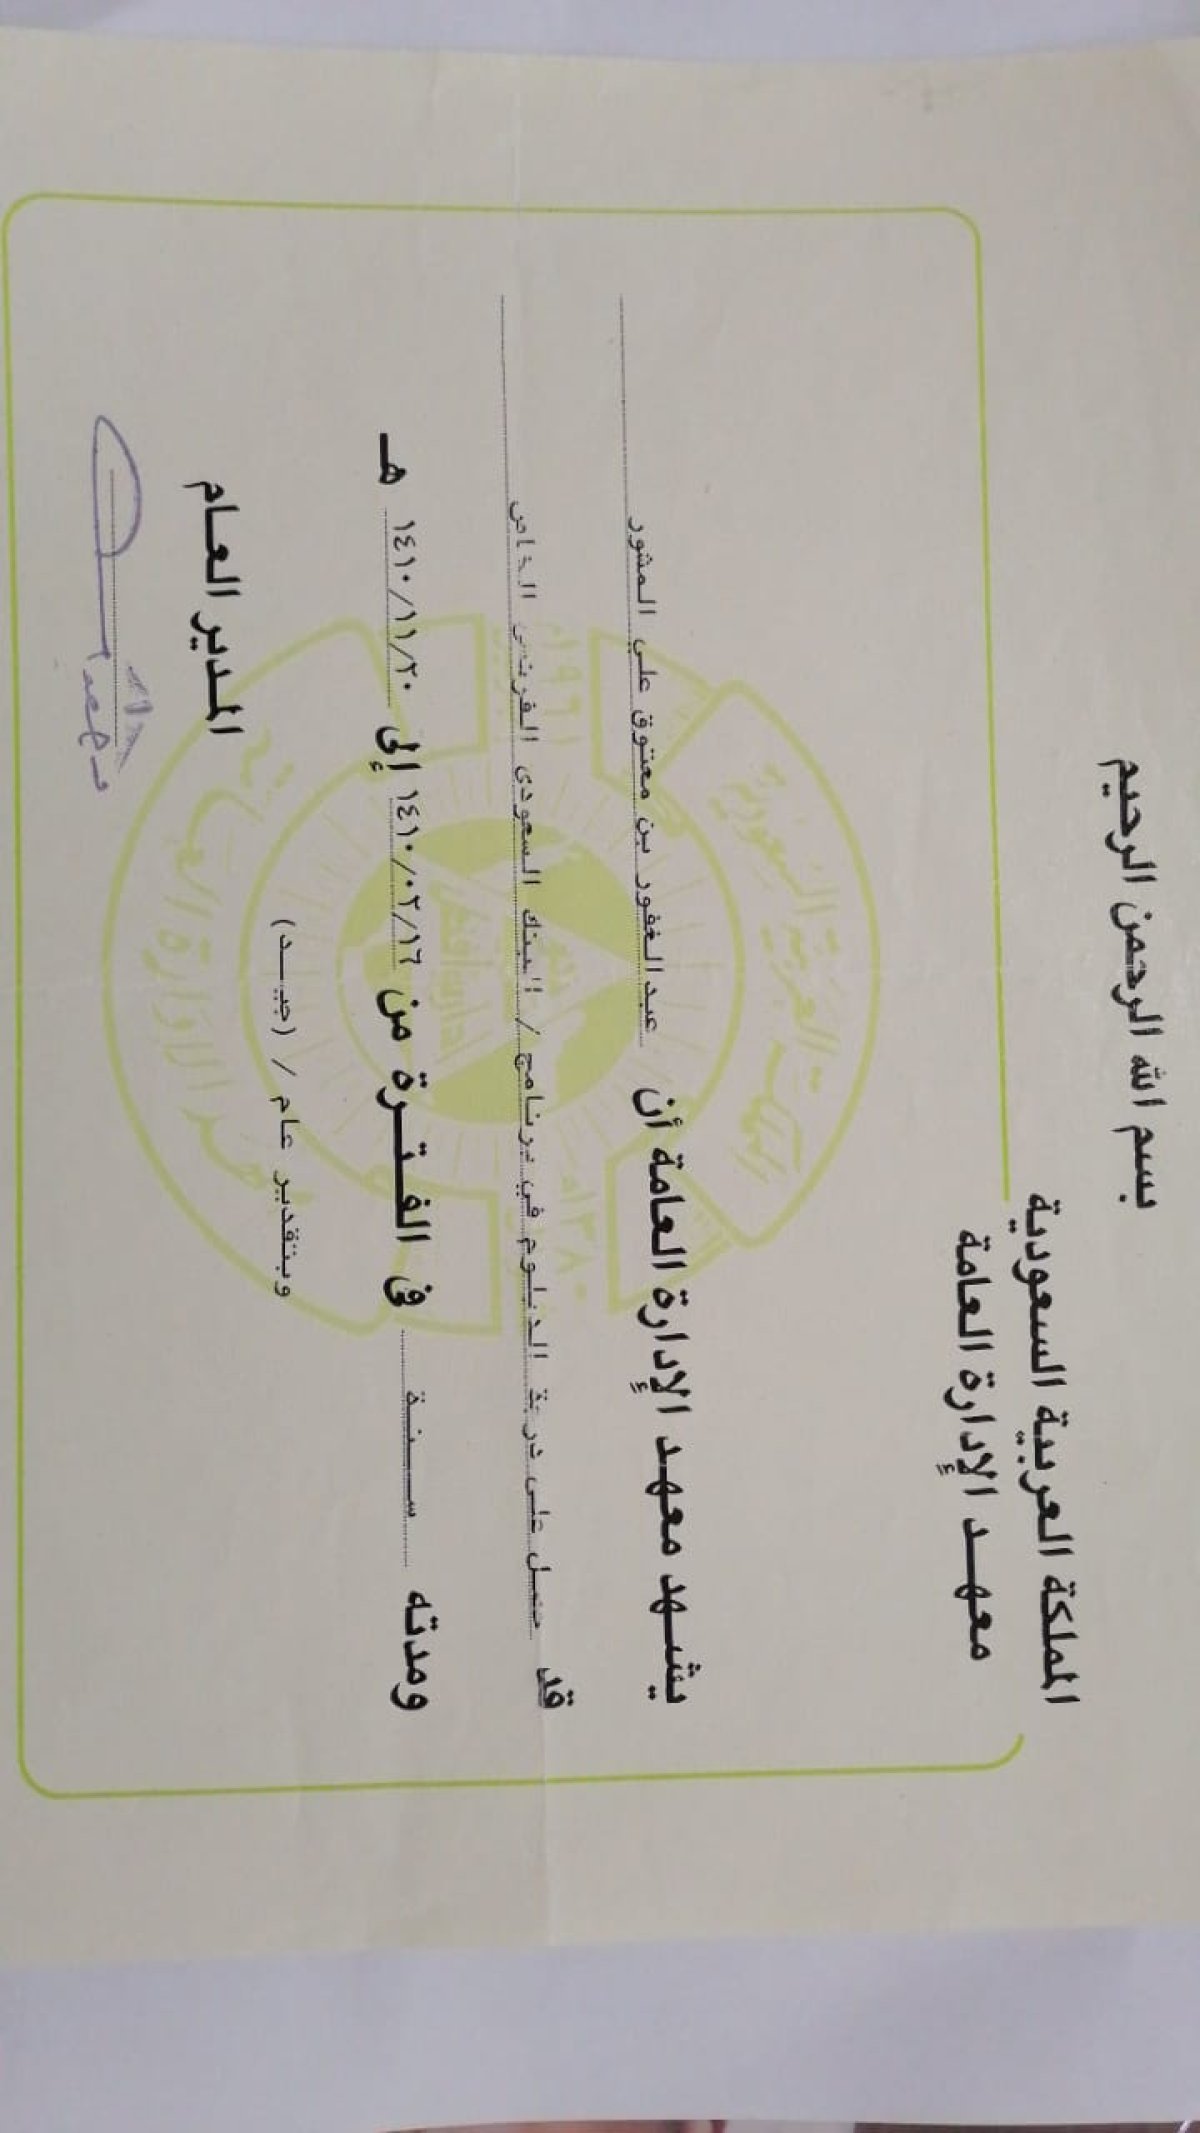 بسم الله الرحمن الرحيم
المملكة العربية السعودية
معهد الإدارة العامة
يشهد معهد الإدارة العامة أن عبدالغفور بن معتوق علي المشور
قد حصل على درجة الدبلوم في برنامج / البنك السعودى الفرنسى الخاص
ومدته سنة في الفترة من ١٤١٠/٠٢/١٦ إلى ١٤١٠/١١/٢٠ هـ
وبتقدير عام / (جيد)
المدير العام
المملكة العربية السعودية
معهد الإدارة العامة